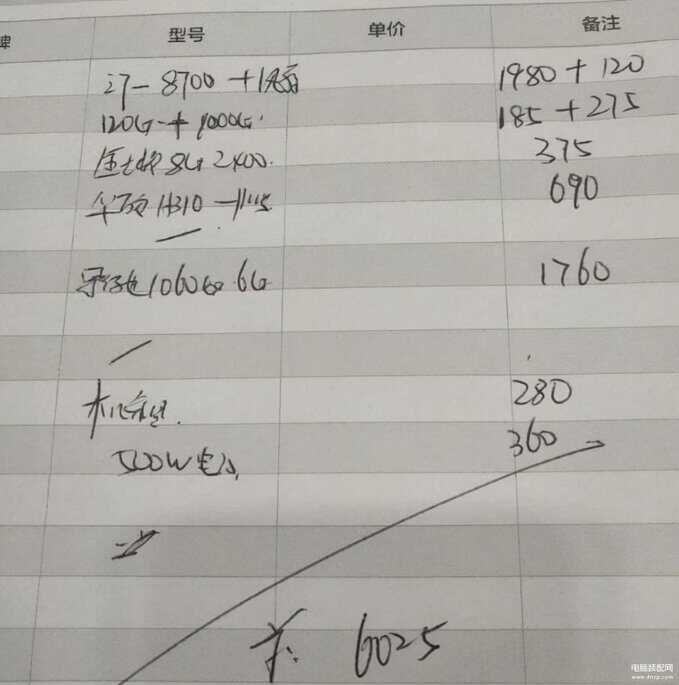 牌 型号 单价 备注
i7-8700+风扇 1980+120
120G+1000G 185+275
8G 2400 375
华硕 H310 690
1060 6G 1760
机箱 280
500W电源 360
共: 6025
电脑装配网
www.dnzp.com